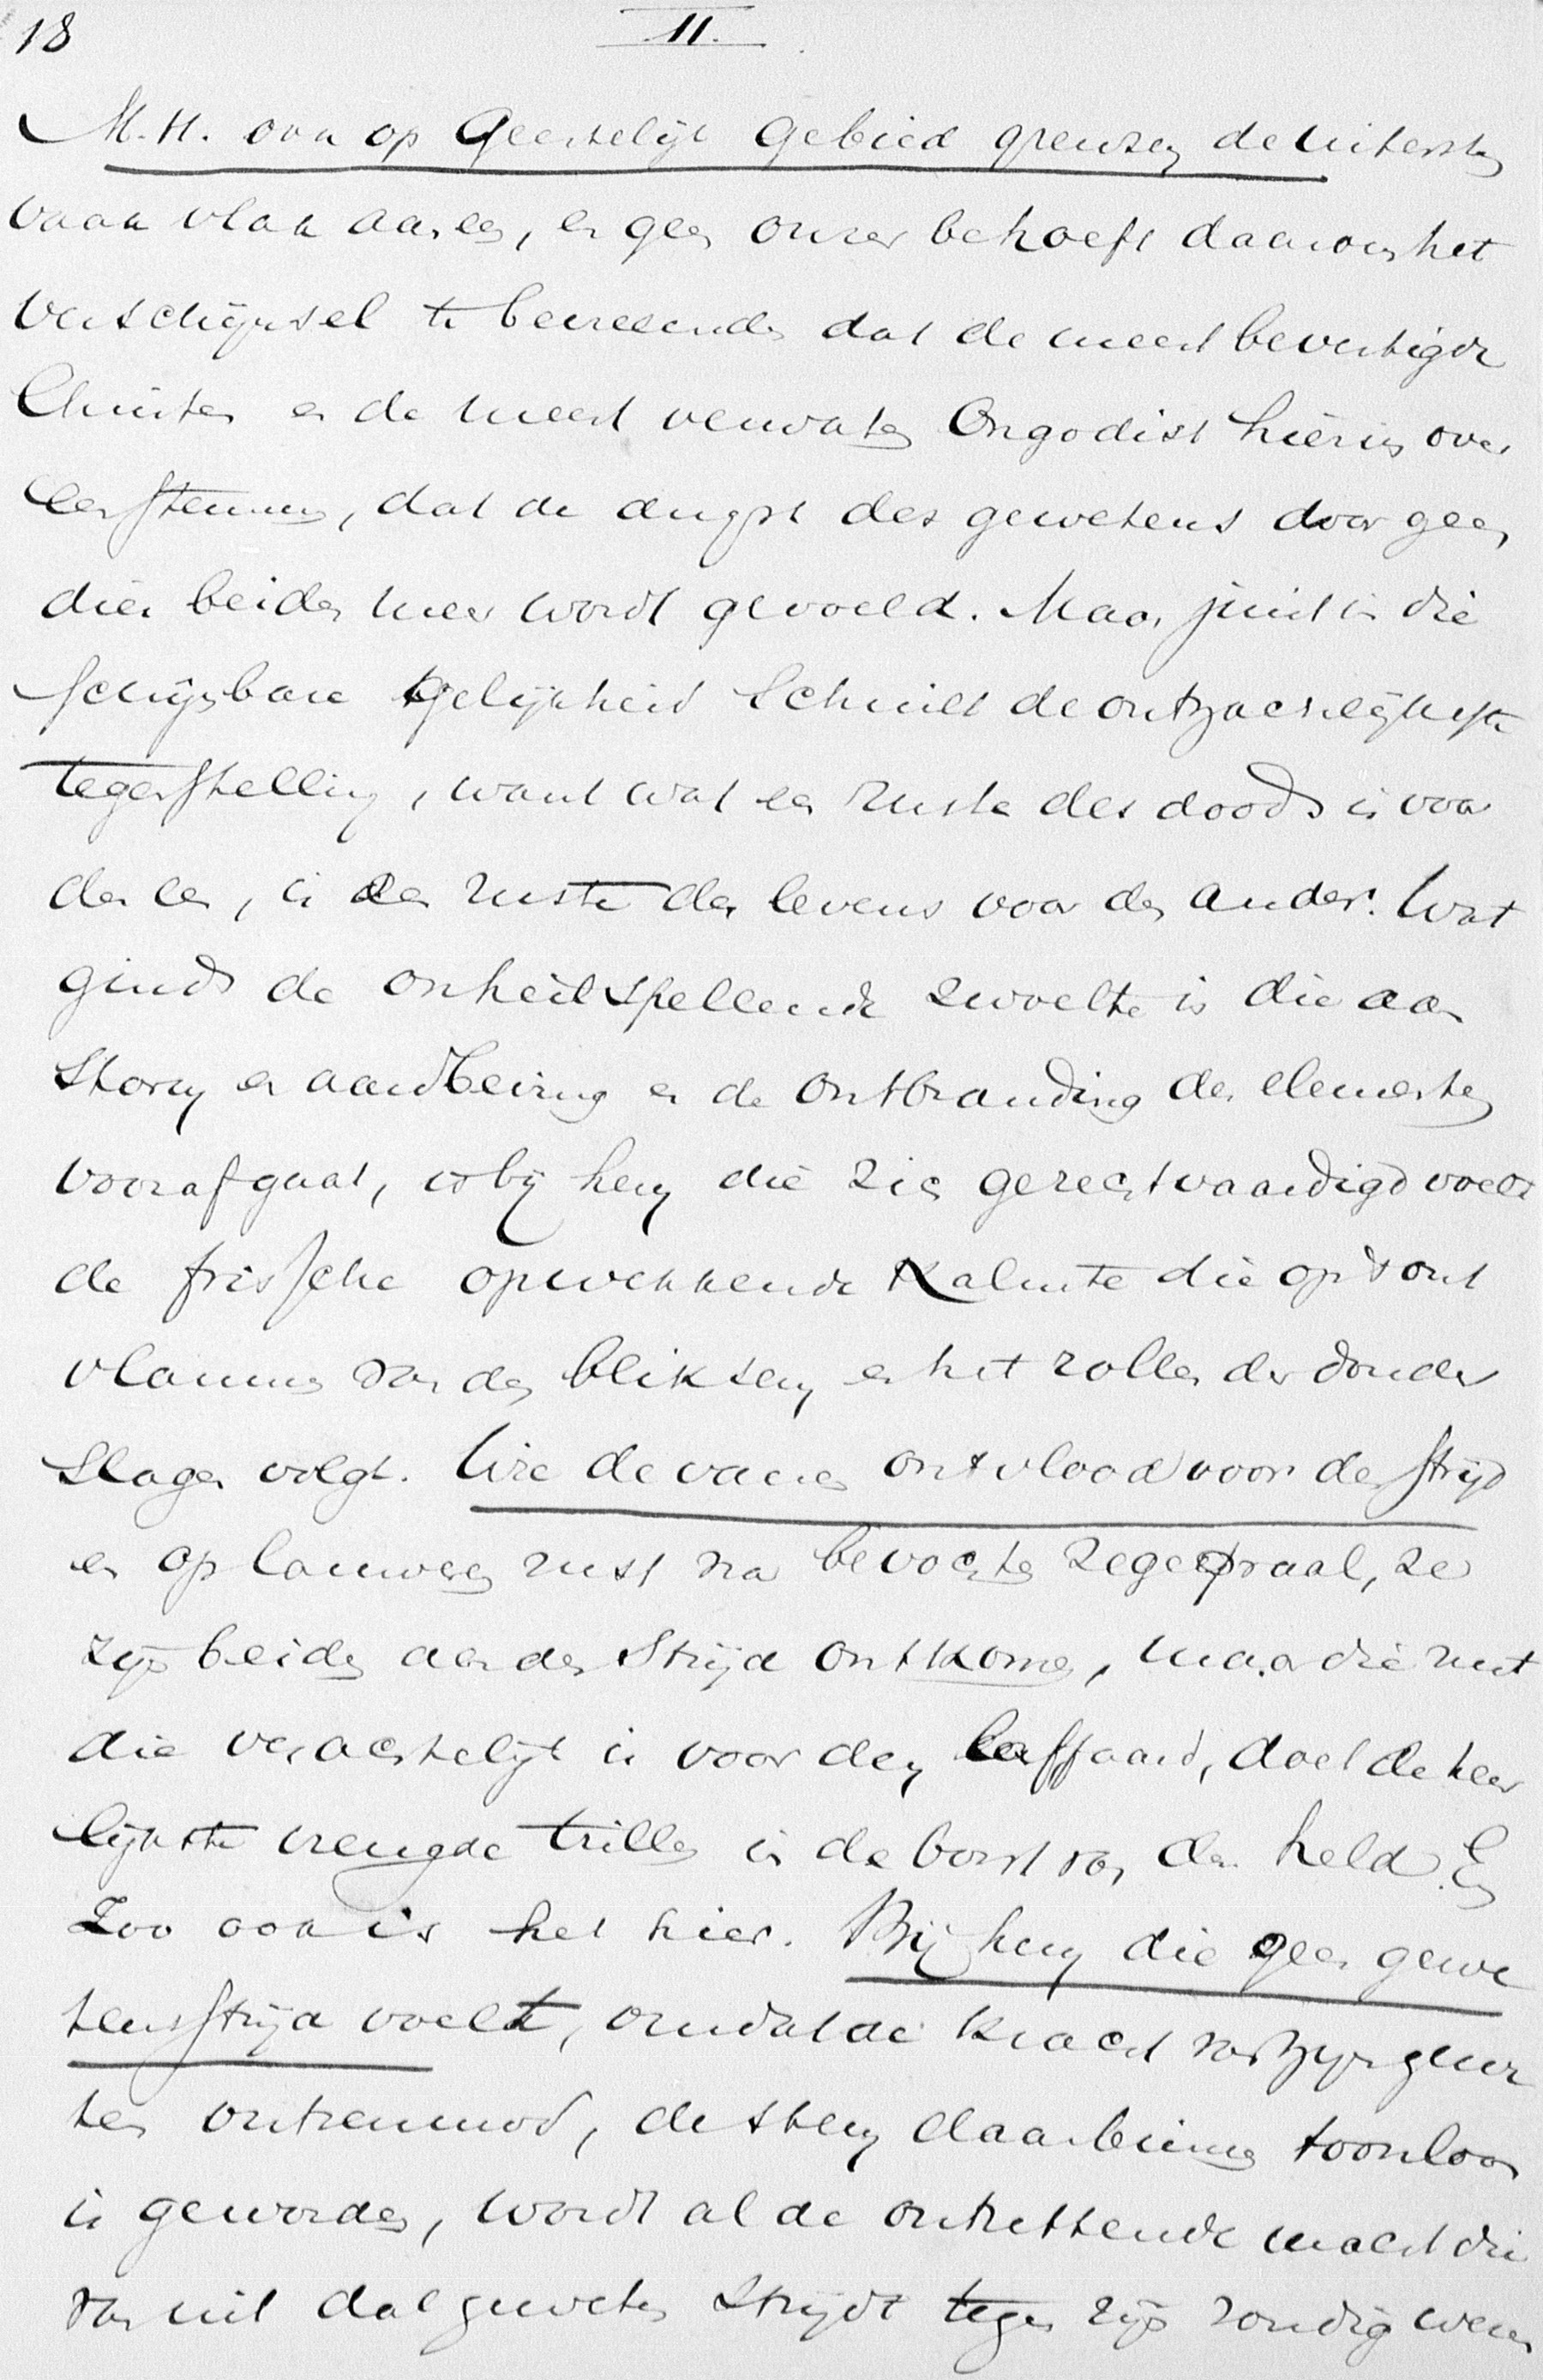 18
II.
M.H. ook op Geestelijk Gebied grenzen de uitersten
vaak vlak aaneen, en geen onzer behoeft daarom het
verschijnsel te bevreemden dat de meest bevestigde
Christen en de meest verwaten Ongodist hierin over
eenstemmen, dat de angst des gewetens door geen
dier beiden meer wordt gevoeld. Maar juist in die
schijnbare gelijkheid schuilt de ontzachelijkste
tegenstelling, want wat een ruste des doods is voor
den een, is een ruste des levens voor den ander. Wat
ginds de onheilspellende zwoelte is die aan
storm en aardbeving en de ontbranding der elementen
voorafgaat, is bij hem die zich gerechtvaardigd voelt
de frissche opwekkende kalmte die op 't ont
vlammen van den bliksem en het rollen der donder
slagen volgt. Wie de vanen ontvlood voor den strijd
en op lauweren rust na bevochten zegepraal, ze
zijn beiden aan den strijd ontkomen, maar die rust
die verachtelijk is voor den laffaard, doet de heer
lijkste vreugde trillen in de borst van den held. En
Zoo ook is het hier. Bij hem die geen gewe
tensstrijd voelt, omdat de kracht van zijn gewe
ten ontzenuwd, de stem daarbinnen toonloos
is geworden, wordt al de ontzettende macht die
van uit dat geweten strijdt tegen zijn zondig wezen